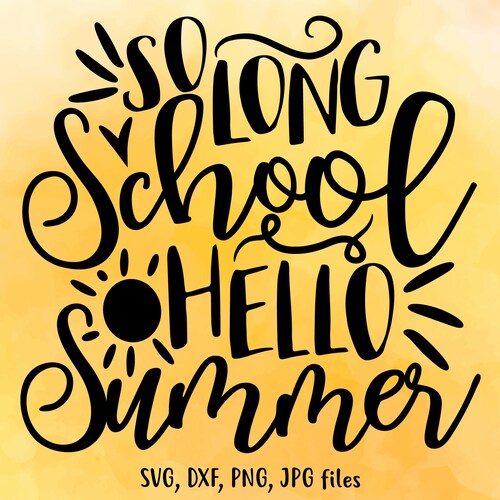 SO LONG
School
HELLO
Summer
SVG, DXF, PNG, JPG files